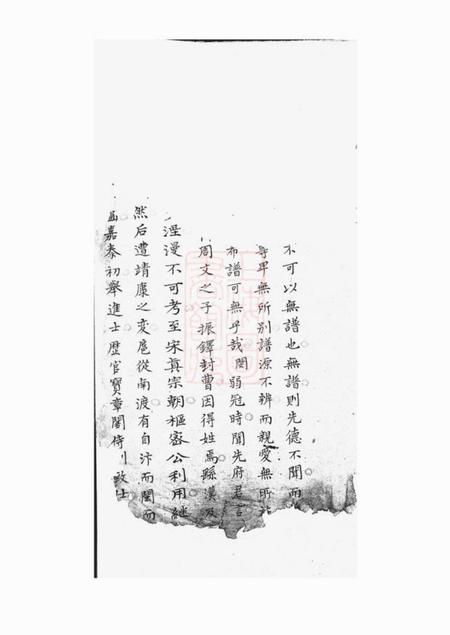 不可以無譜也無譜則先德不聞而
尊卑無所別譜源不辨而親愛無所
而譜可無乎哉閱弱冠時聞先府君言
周文之子振鐸封曹因得姓焉緜漢及
湮漫不可考至宋真宗朝樞密公利用繼
然后遭靖康之変扈從南渡有自汴而閩而
嘉泰初舉進士歴官寶章閣侍致仕